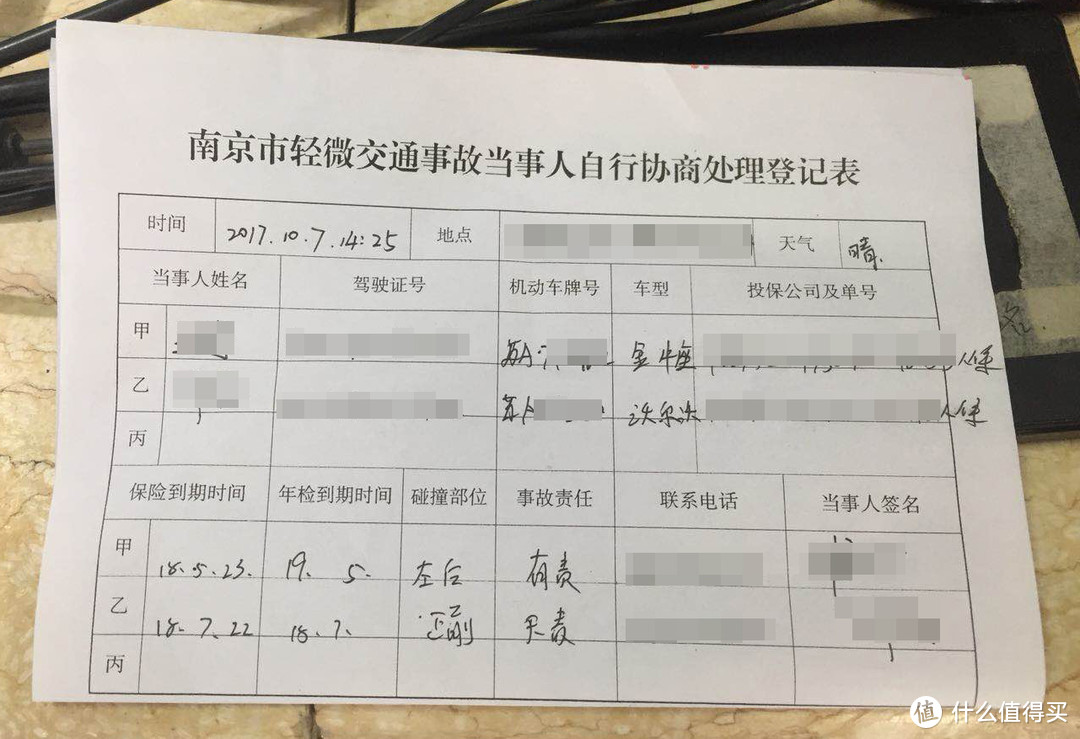 南京市轻微交通事故当事人自行协商处理登记表
时间 2017.10.7.14:25 地点 天气 晴.
当事人姓名 驾驶证号 机动车牌号 车型 投保公司及单号
甲 苏A 金牛座 人保
乙 苏A 沃尔沃 人保
丙
保险到期时间 年检到期时间 碰撞部位 事故责任 联系电话 当事人签名
甲 18.5.23. 19. 5. 左后 有责
乙 18.7.22 18.7. 正前 无责
丙
值 什么值得买